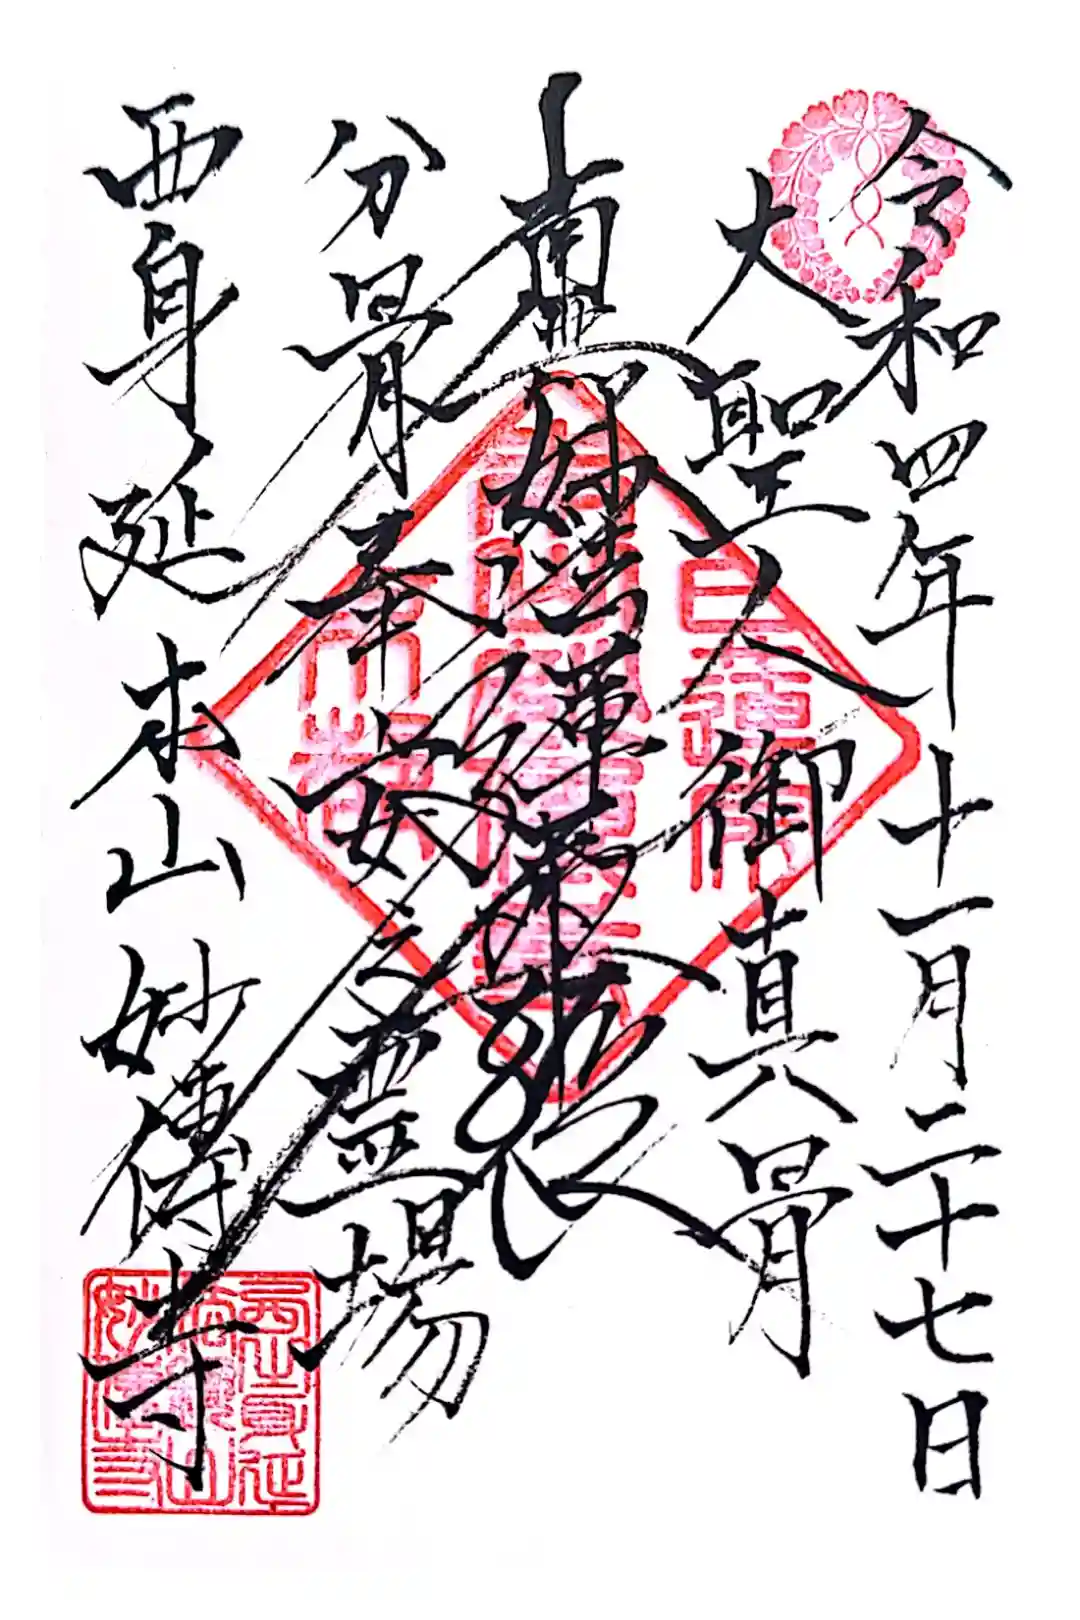 令和四年十一月二十七日
大聖人御真骨
南無妙法蓮華経
分骨奉安之霊場
西身延本山妙傳寺